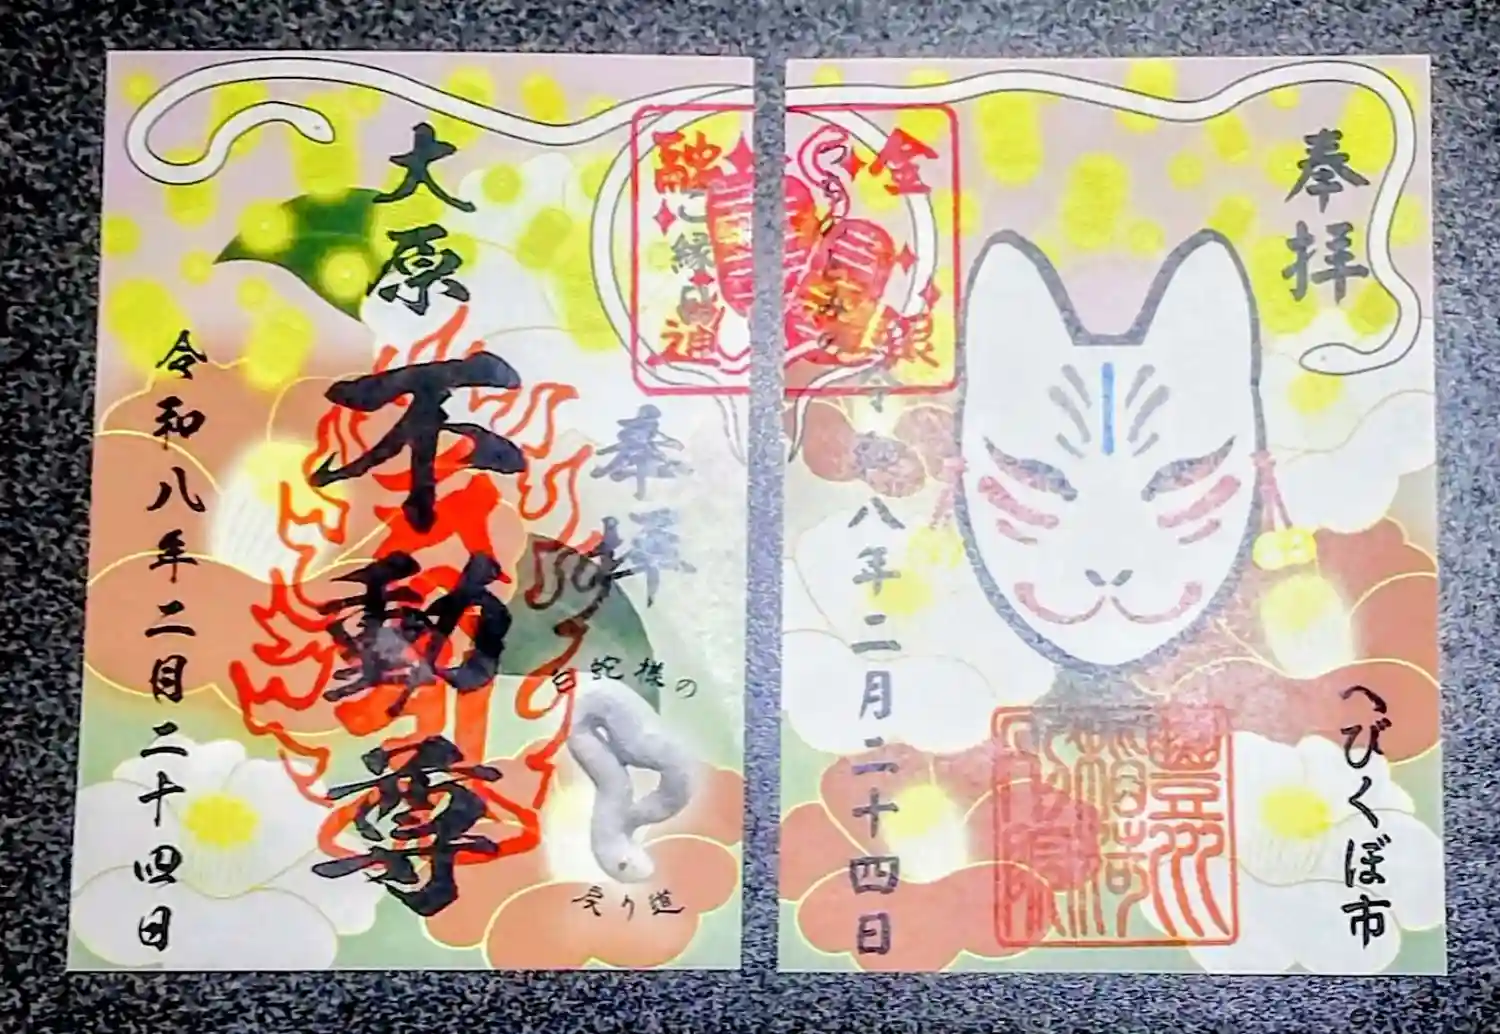 奉拝
へびくぼ市
豊川
稲荷
令和八年二月二十四日
金銀
融通
奉拝
白蛇様の
り道
大原
不動尊
令和八年二月二十四日